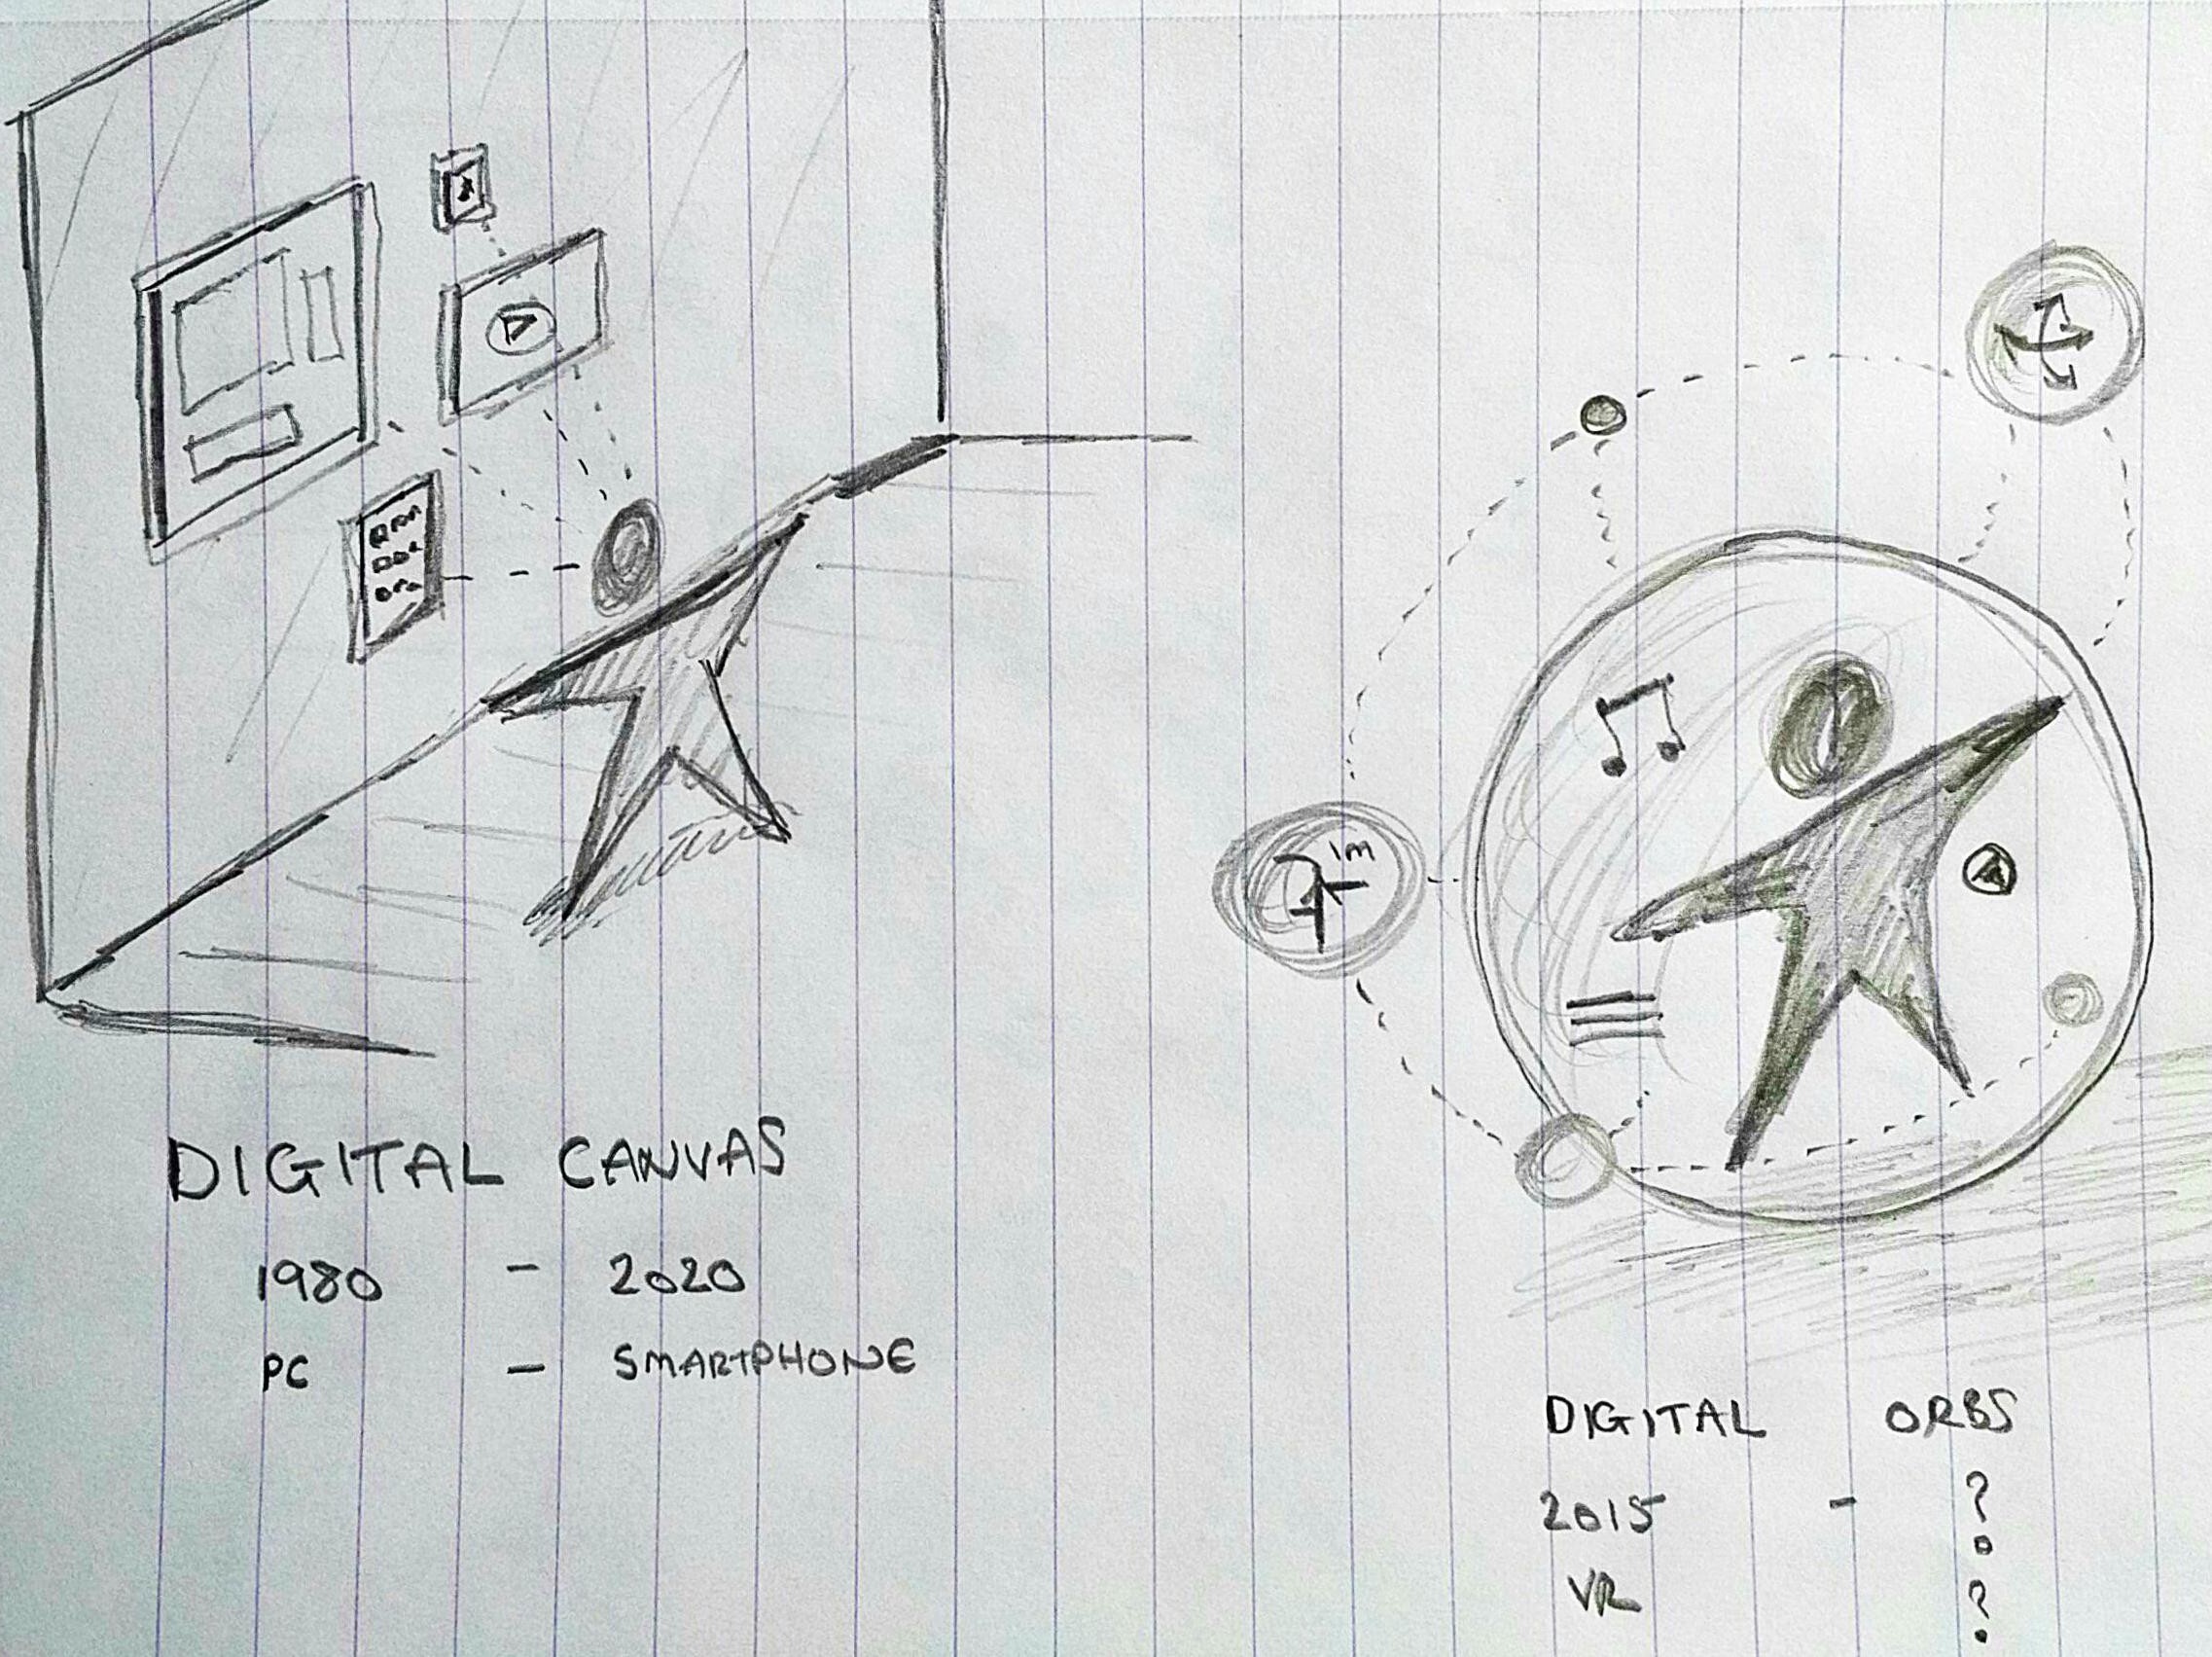 1m
DIGITAL CANVAS
1980 - 2020
PC - SMARTPHONE
DIGITAL ORBS
2015 - ?
VR ?